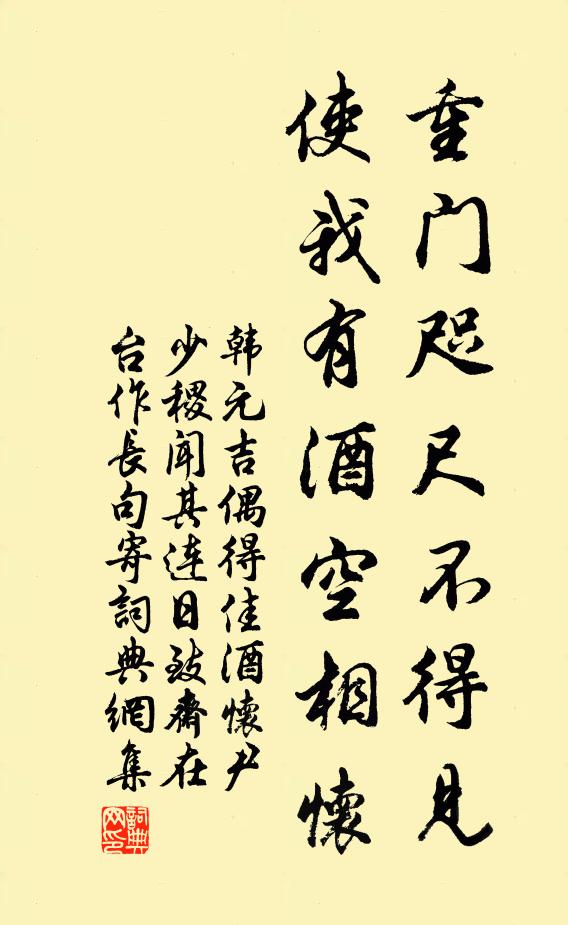 重门咫尺不得见
使我有酒空相懷
韩元吉偶得佳酒懷尹
少稷闻其连日致齋在
台作長句寄詞典網集
詞典
网印